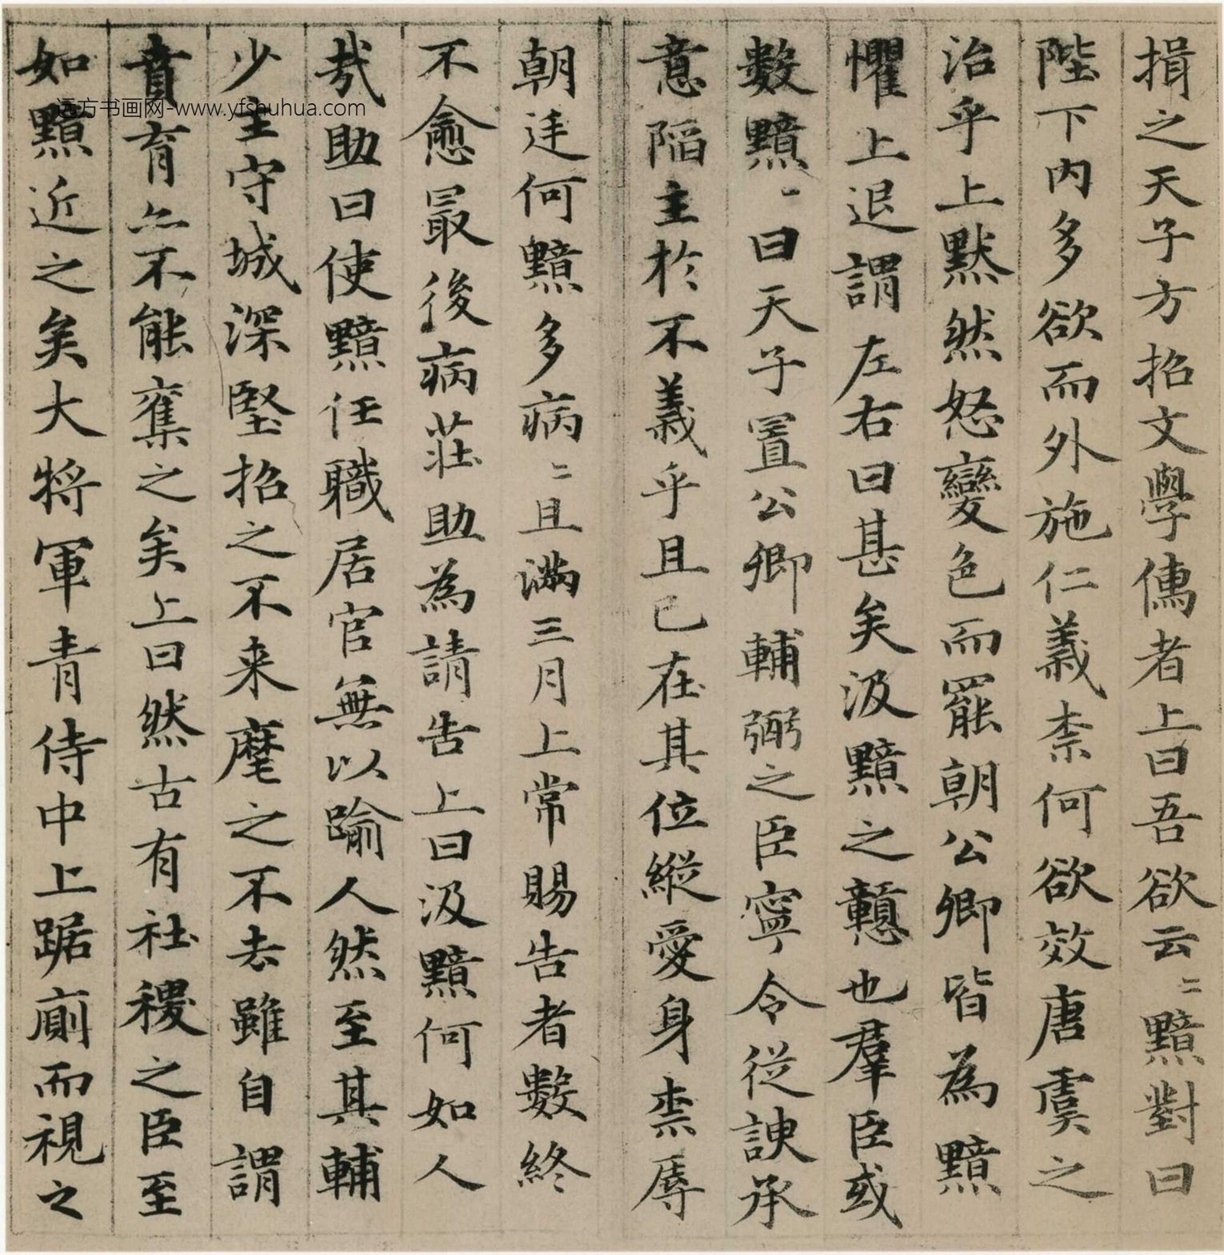 揖之天子方招文學儒者上曰吾欲云〻黯對曰
陛下内多欲而外施仁義柰何欲效唐虞之
治乎上黙然怒變色而罷朝公卿皆為黯
懼上退謂左右曰甚矣汲黯之戇也羣臣或
數黯〻曰天子置公卿輔弼之臣寧令從諛承
意陷主於不義乎且已在其位縱愛身柰辱
朝廷何黯多病〻且滿三月上常賜告者數終
不愈最後病莊助為請告上曰汲黯何如人
㢤助曰使黯任職居官無以踰人然至其輔
少主守城深堅招之不来麾之不去雖自謂
賁育亦不能奪之矣上曰然古有社稷之臣至
如黯近之矣大將軍青侍中上踞廁而視之
远方书画网-www.yfshuhua.com